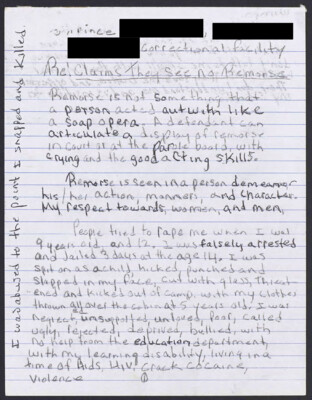 Prince
correctional facility
Re: Claims They See No Remorse
Remorse is not something that
a person acted out with like
a soap opera. A defendant can
articulate a display of remorse
in court or at the parole board, with
crying and the good acting skills.
Remorse is seen in a person demeanor
his/her action, manners, and character.
My respect towards, women, and men,
People tried to rape me when I was
9 years old, and 12, I was falsely arrested
and Jailed 3 days at the age 14, I was
spit on as a child, kicked, punched and
slapped in my face, cut with glass, Threat-
ened and kicked out of camp, with my clothes
thrown all over the cabin at 9 years old, I was
neglect, unsupported, unloved, Poor, called
ugly, rejected, deprived, bullied, with
no help from the education department,
with my learning disability, living in a
time of Aids, H.I.V. Crack Cocaine,
Violence
I was abused to the point I snapped and killed.